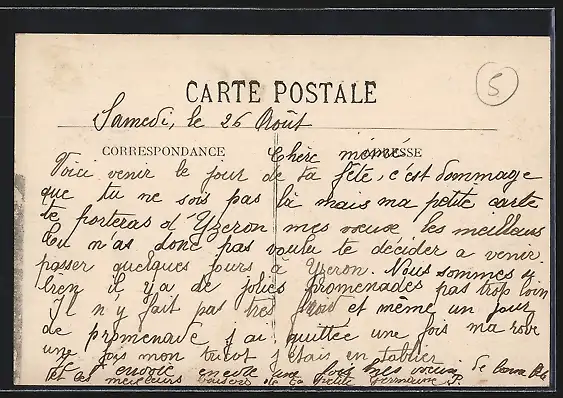 5
CARTE POSTALE
Samedi, le 26 Août
CORRESPONDANCE
ADRESSE
Chère mémé
Voici venir le jour de ta fête, c'est dommage
que tu ne sois pas là mais ma petite carte
te porteras d'Yzeron mes voeux les meilleurs
tu n'as donc pas voulu te décider a venir
passer quelques jours à Yzeron. Nous sommes si
bien il y a de jolies promenades pas trop loin
Il n'y fait pas très froid et même un jour
de promenade j'ai quittée une fois ma robe
une fois mon tricot j'étais en tablier
J'envoie encore une fois mes voeux de bonne fête
et les meilleurs baisers de ta petite Germaine P.